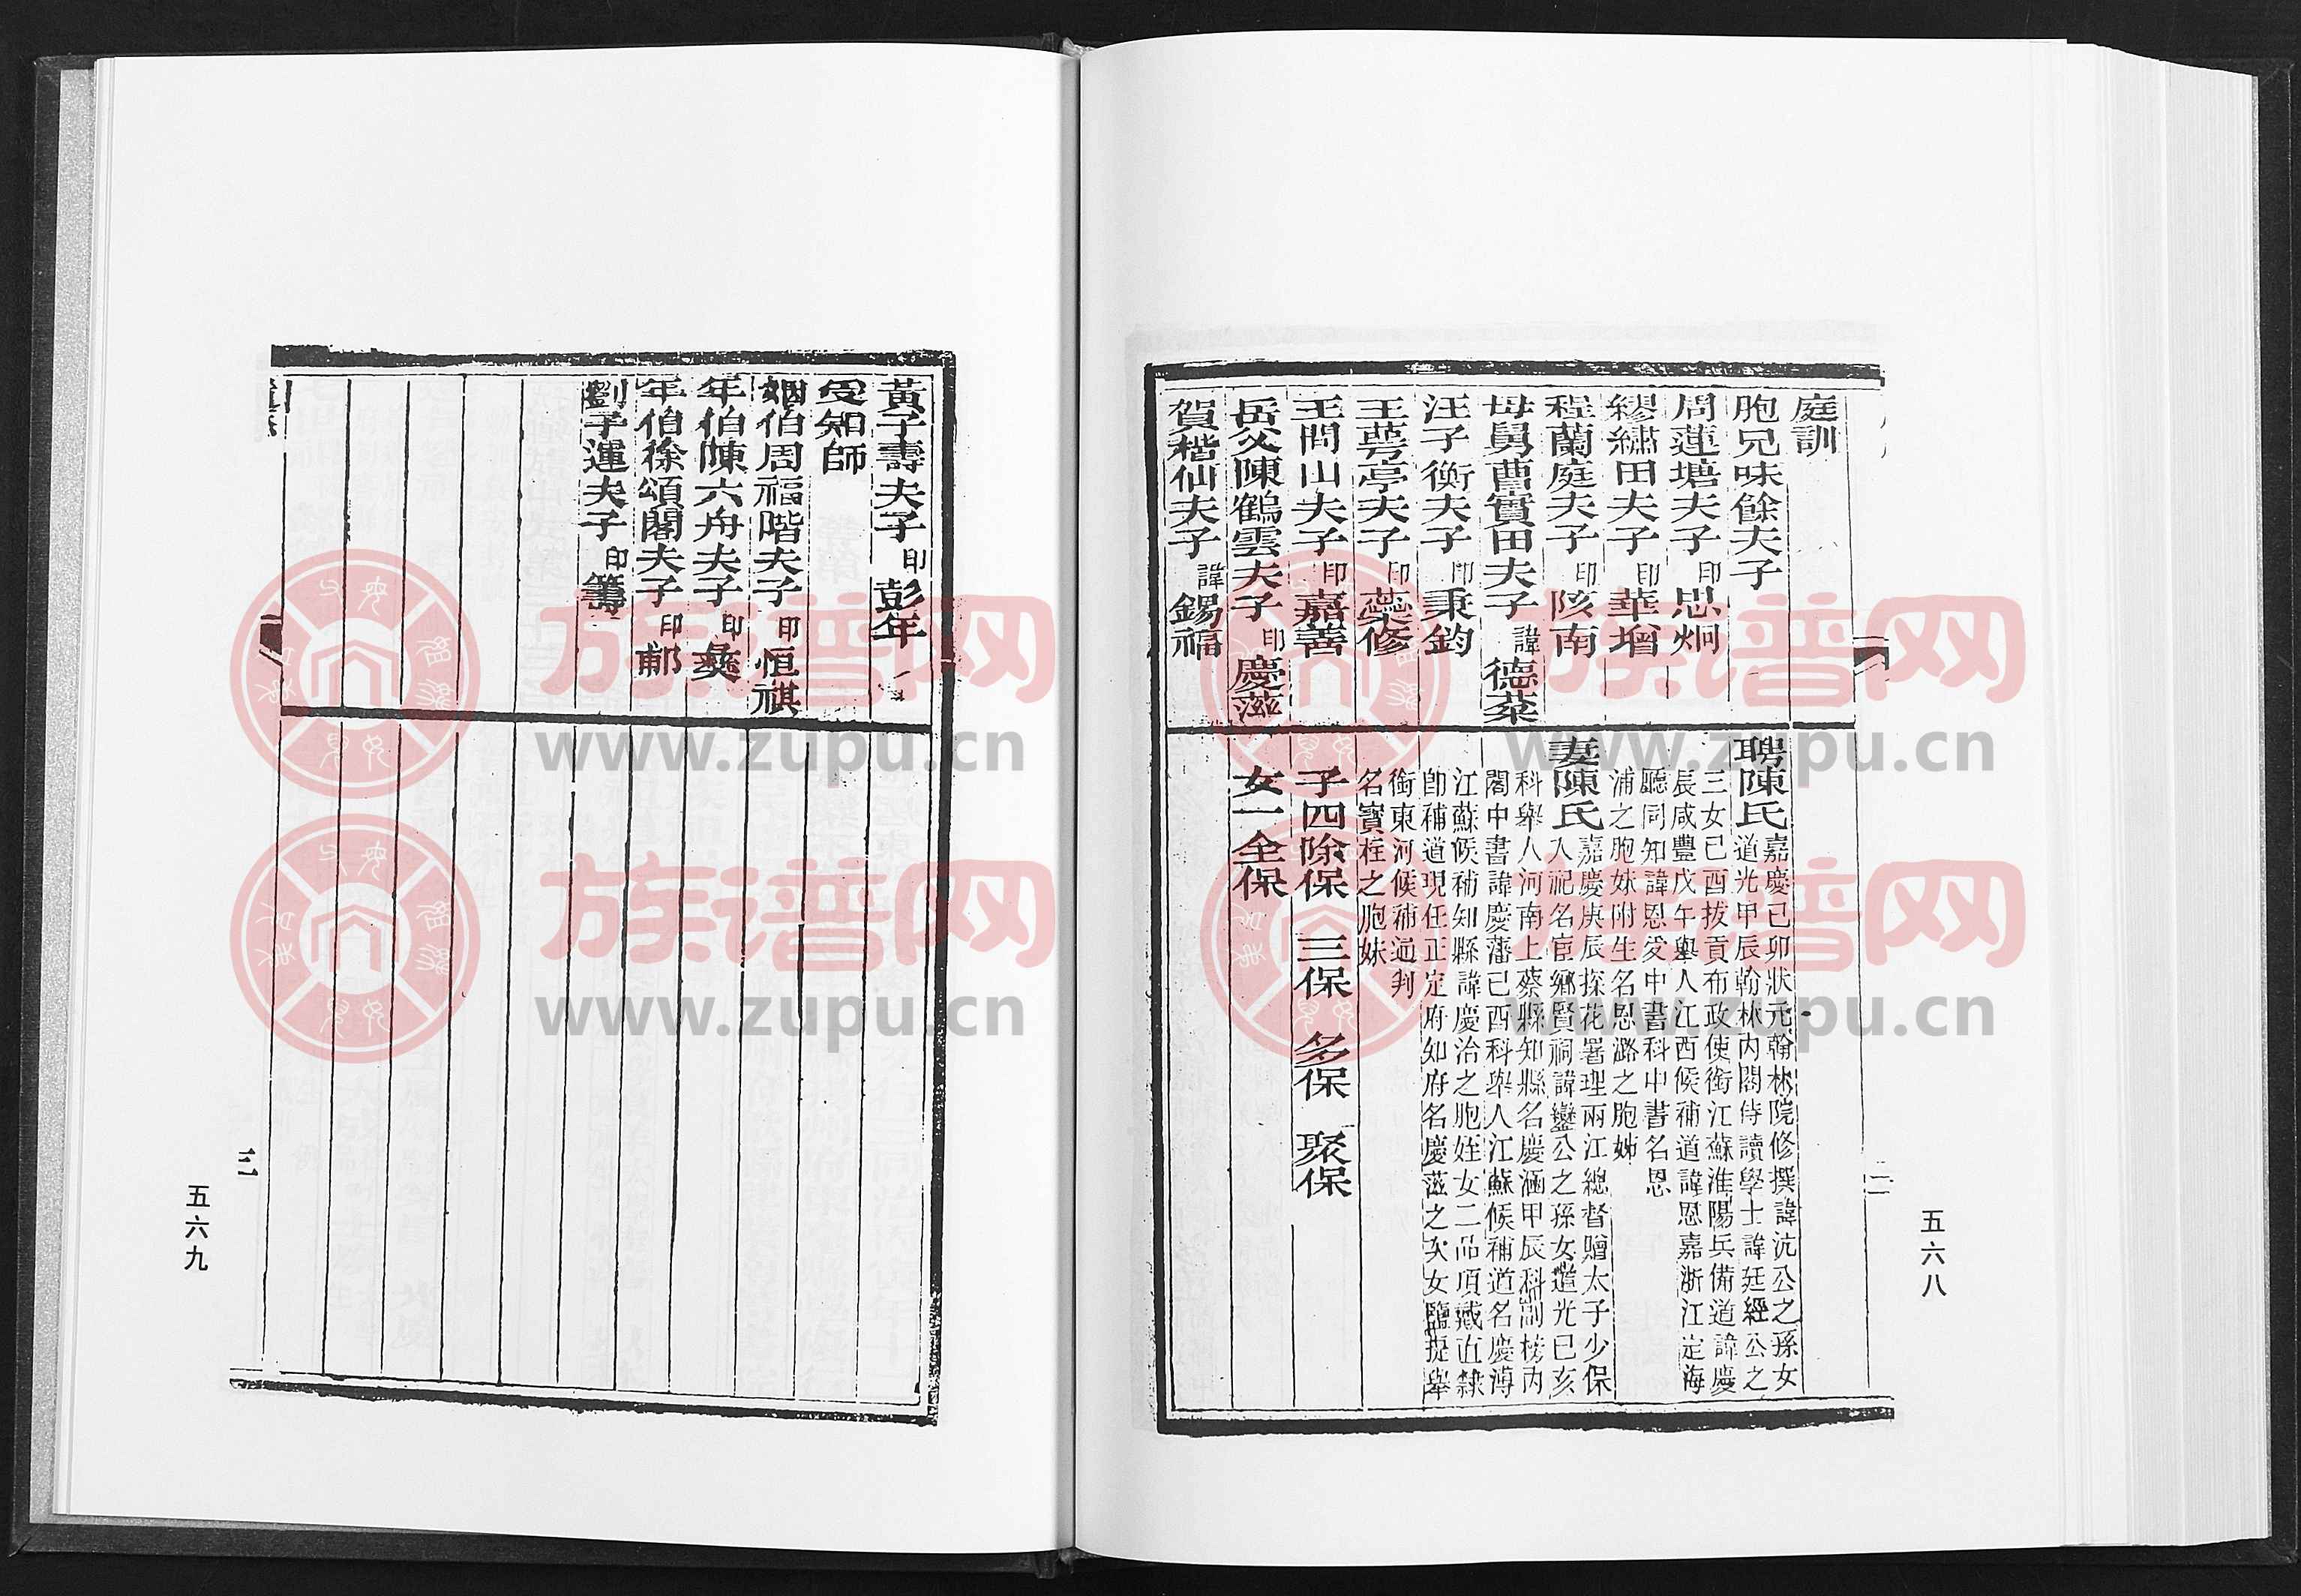 庭訓
胞兄味餘夫子
周蓮塘夫子 印思炯
繆繡田夫子 印華增
程蘭庭夫子 印陔南
母舅曹寶田夫子 諱德棻
汪子衡夫子 印秉鈞
王萼亭夫子 印蘂修
王問山夫子 印嘉善
岳父陳鶴雲夫子 印慶滋
賀楷仙夫子 諱錫福
聘陳氏 嘉慶己卯狀元翰林院修撰諱沆公之孫女
道光甲辰翰林內閣侍讀學士諱廷經公之
三女己酉拔貢布政使銜江蘇淮陽兵備道諱慶
辰咸豐戊午舉人江西候補道諱恩嘉浙江定海
廳同知諱恩受中書科中書名恩
浦之胞妹附生名恩潞之胞姊
妻陳氏 嘉慶庚辰探花署理兩江總督贈太子少保
入祀名宦鄉賢祠諱鑾公之孫女道光己亥
科舉人河南上蔡縣知縣名慶涵甲辰科副榜內
閣中書諱慶藩己酉科舉人江蘇候補道名慶溥
江蘇候補知縣諱慶治之胞姪女二品頂戴直隸
即補道現任正定府知府名慶滋之次女鹽提舉
銜東河候補通判
名寶柱之胞妹
子四除保 三保 多保 聚保
女一全保
二
五六八
黃子壽夫子 印彭年
受知師
姻伯周福階夫子 印恒祺
年伯陳六舟夫子 印彝
年伯徐頌閣夫子 印郙
劉子運夫子 印籌
三
五六九
族谱网
www.zupu.cn
族谱网
www.zupu.cn
族谱网
www.zupu.cn
族谱网
www.zupu.cn